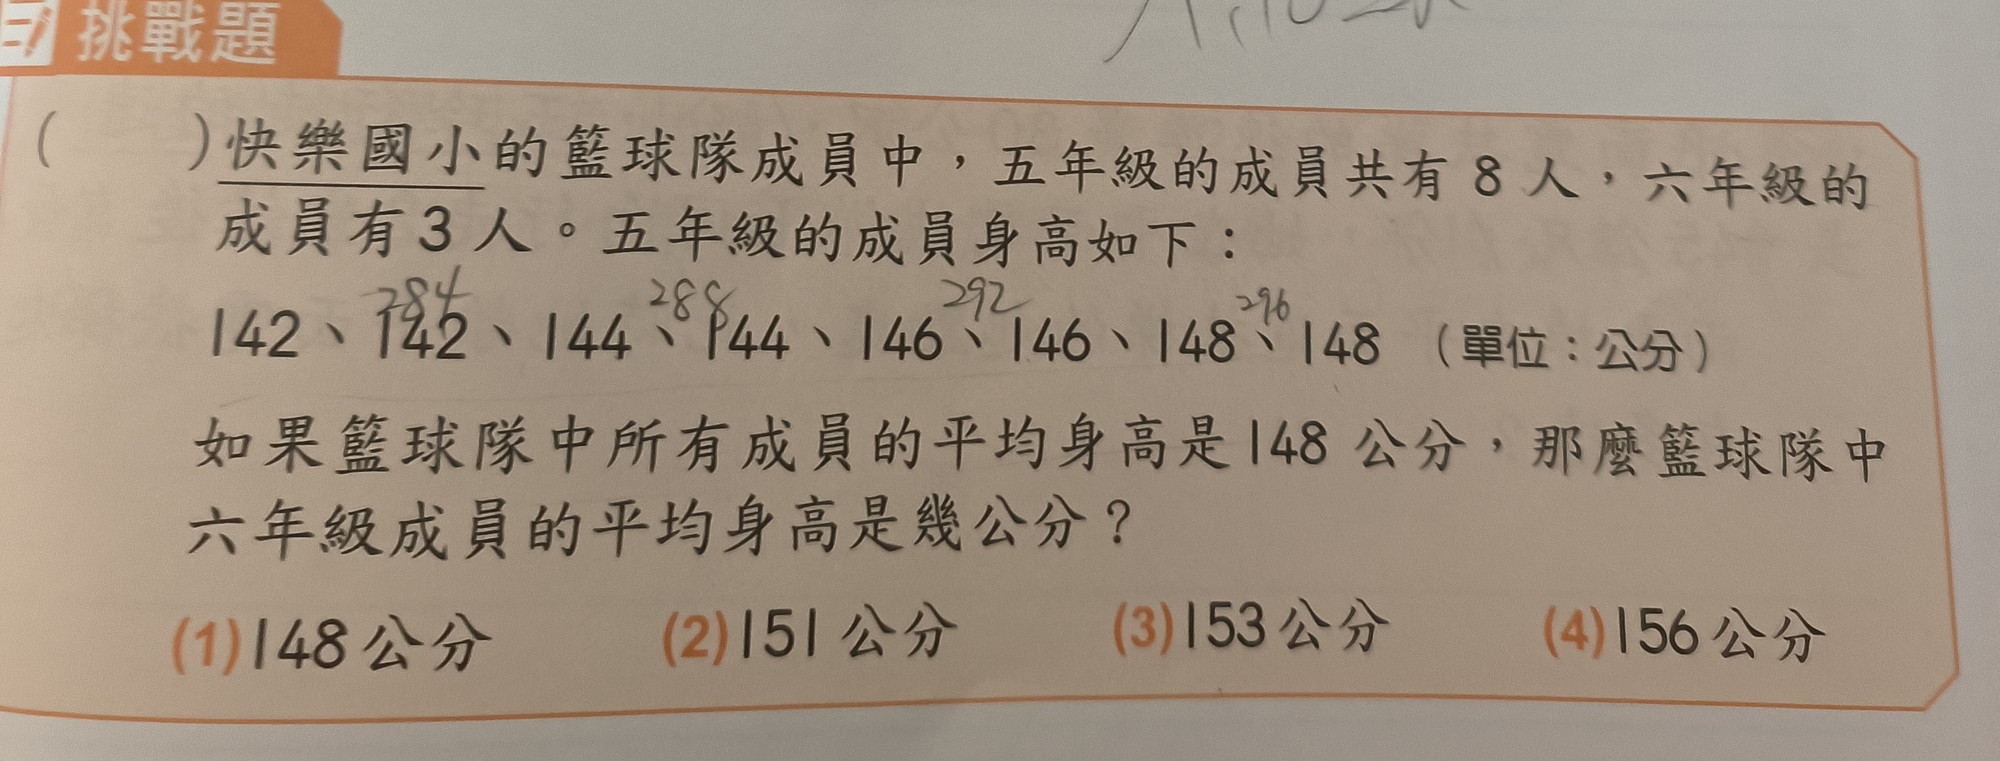 挑戰題
(　　)快樂國小的籃球隊成員中，五年級的成員共有 8 人，六年級的
成員有 3 人。五年級的成員身高如下：
284 288 292 296
142、142、144、144、146、146、148、148 （單位：公分）
如果籃球隊中所有成員的平均身高是 148 公分，那麼籃球隊中
六年級成員的平均身高是幾公分？
(1)148 公分 (2)151 公分 (3)153 公分 (4)156 公分